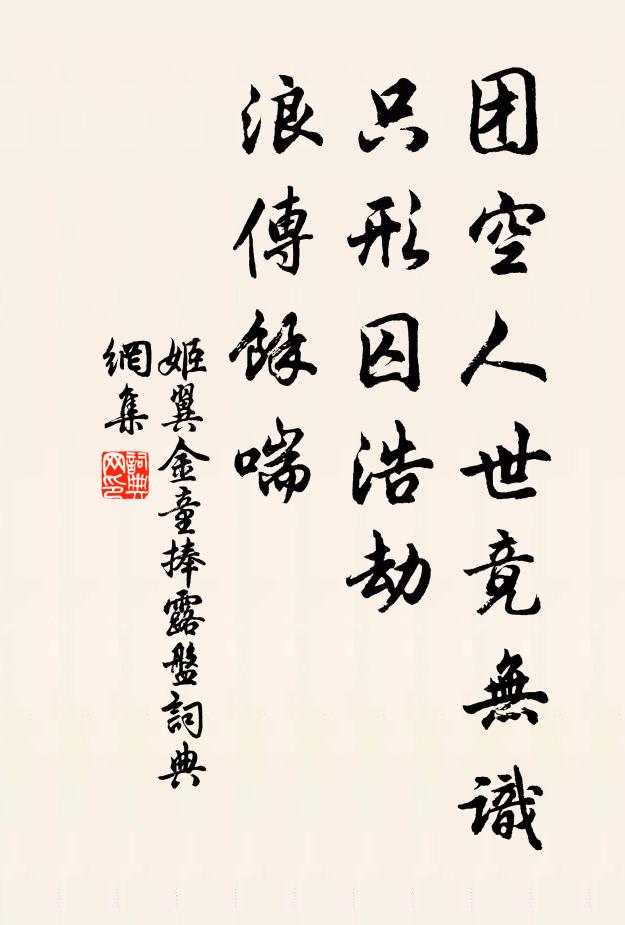 团空人世竟無識
只形囚浩劫
浪傳餘喘
姬翼金童捧露盤詞典
網集
詞典
網印